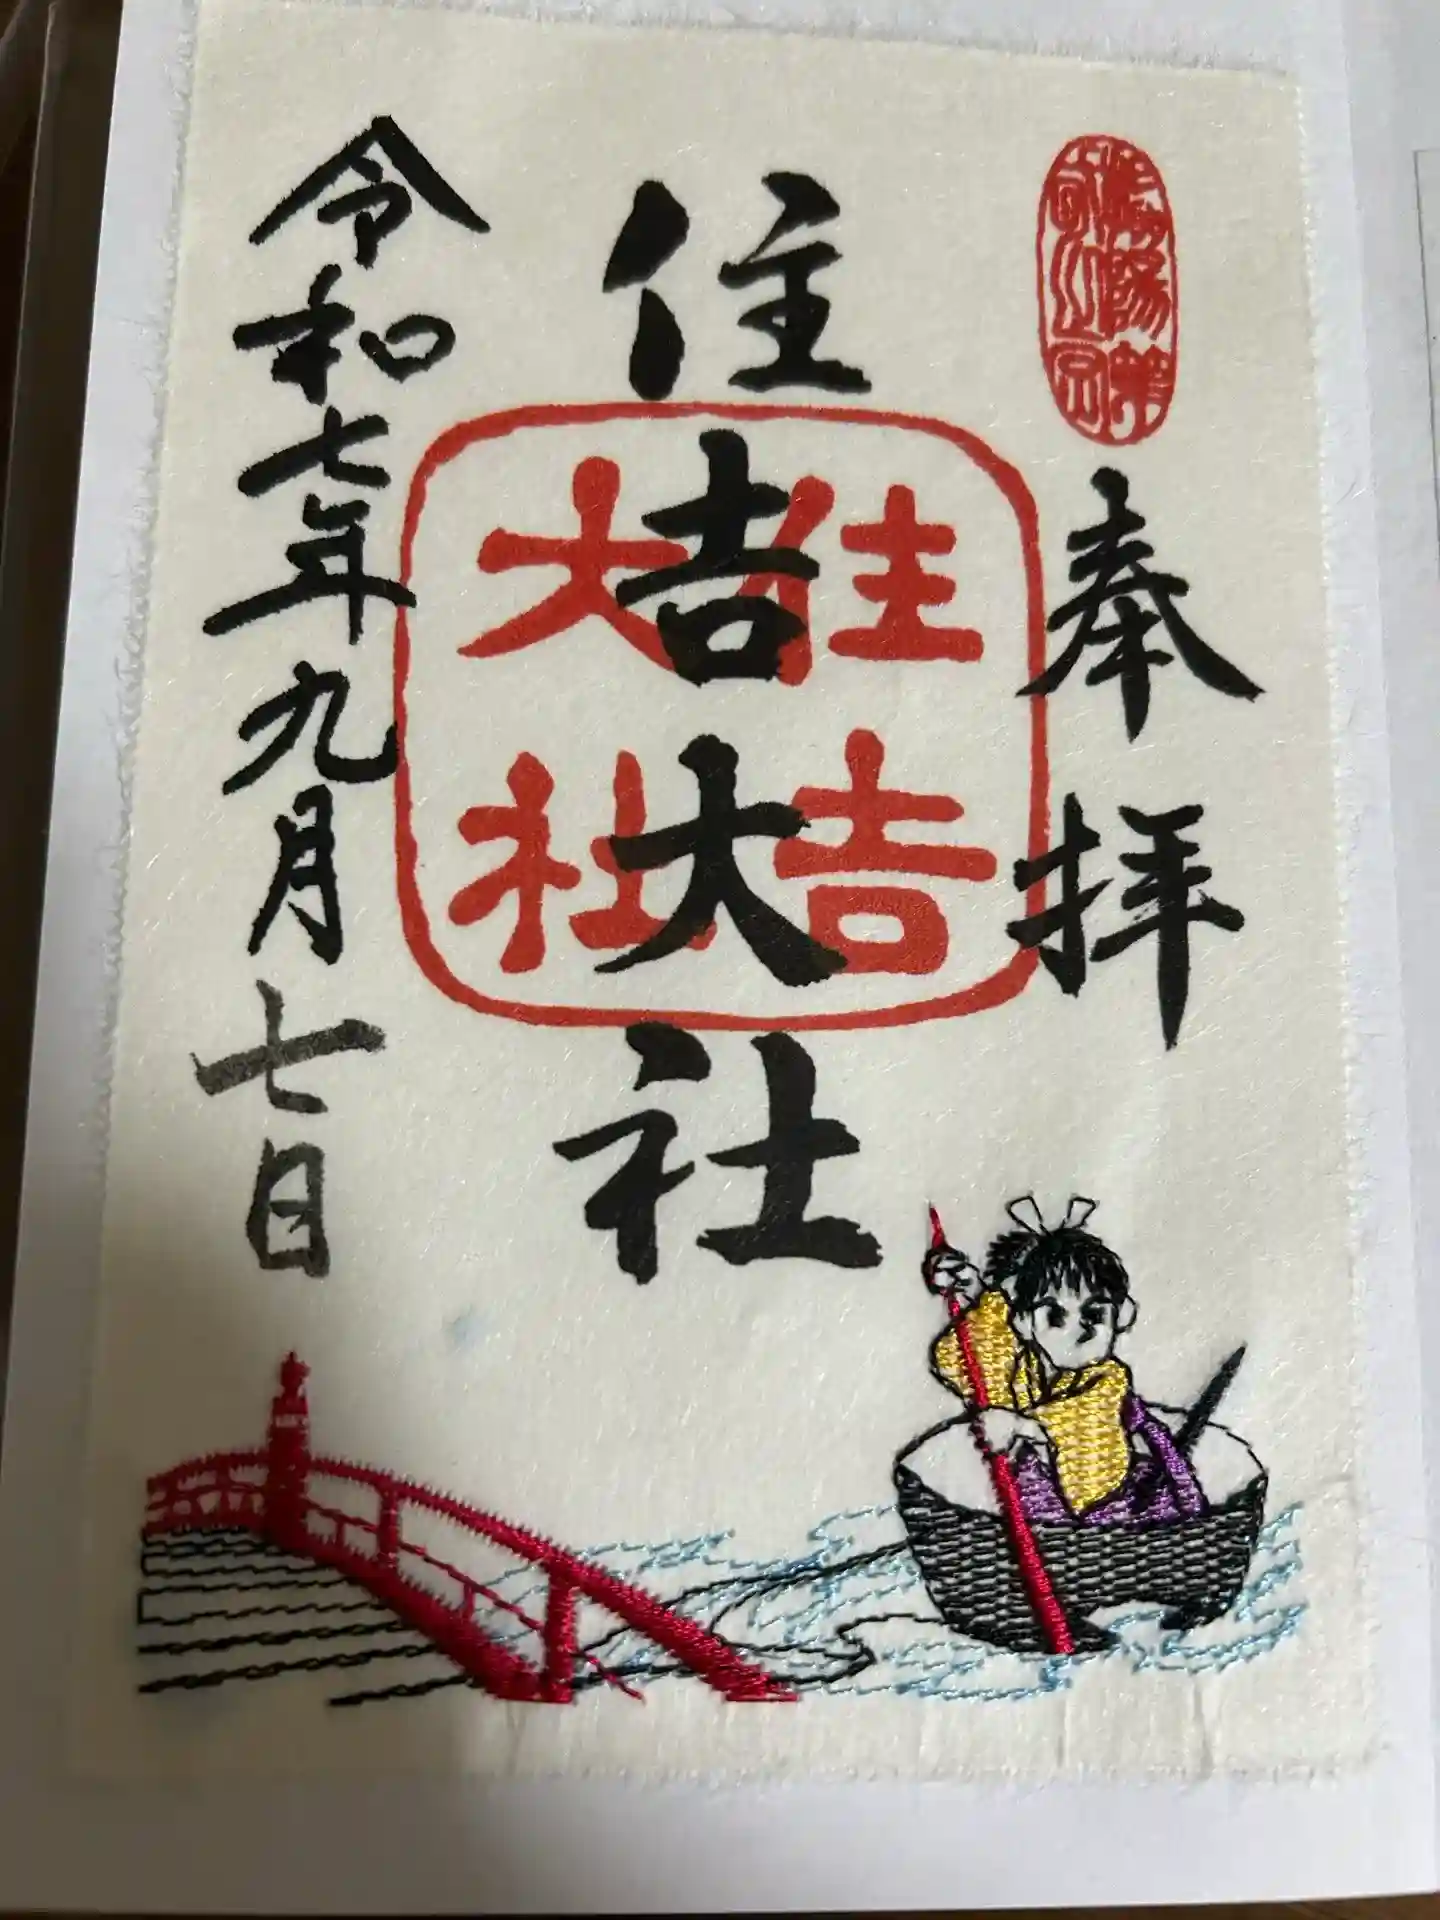 奉拝
住吉大社
住吉
大社
令和七年九月七日